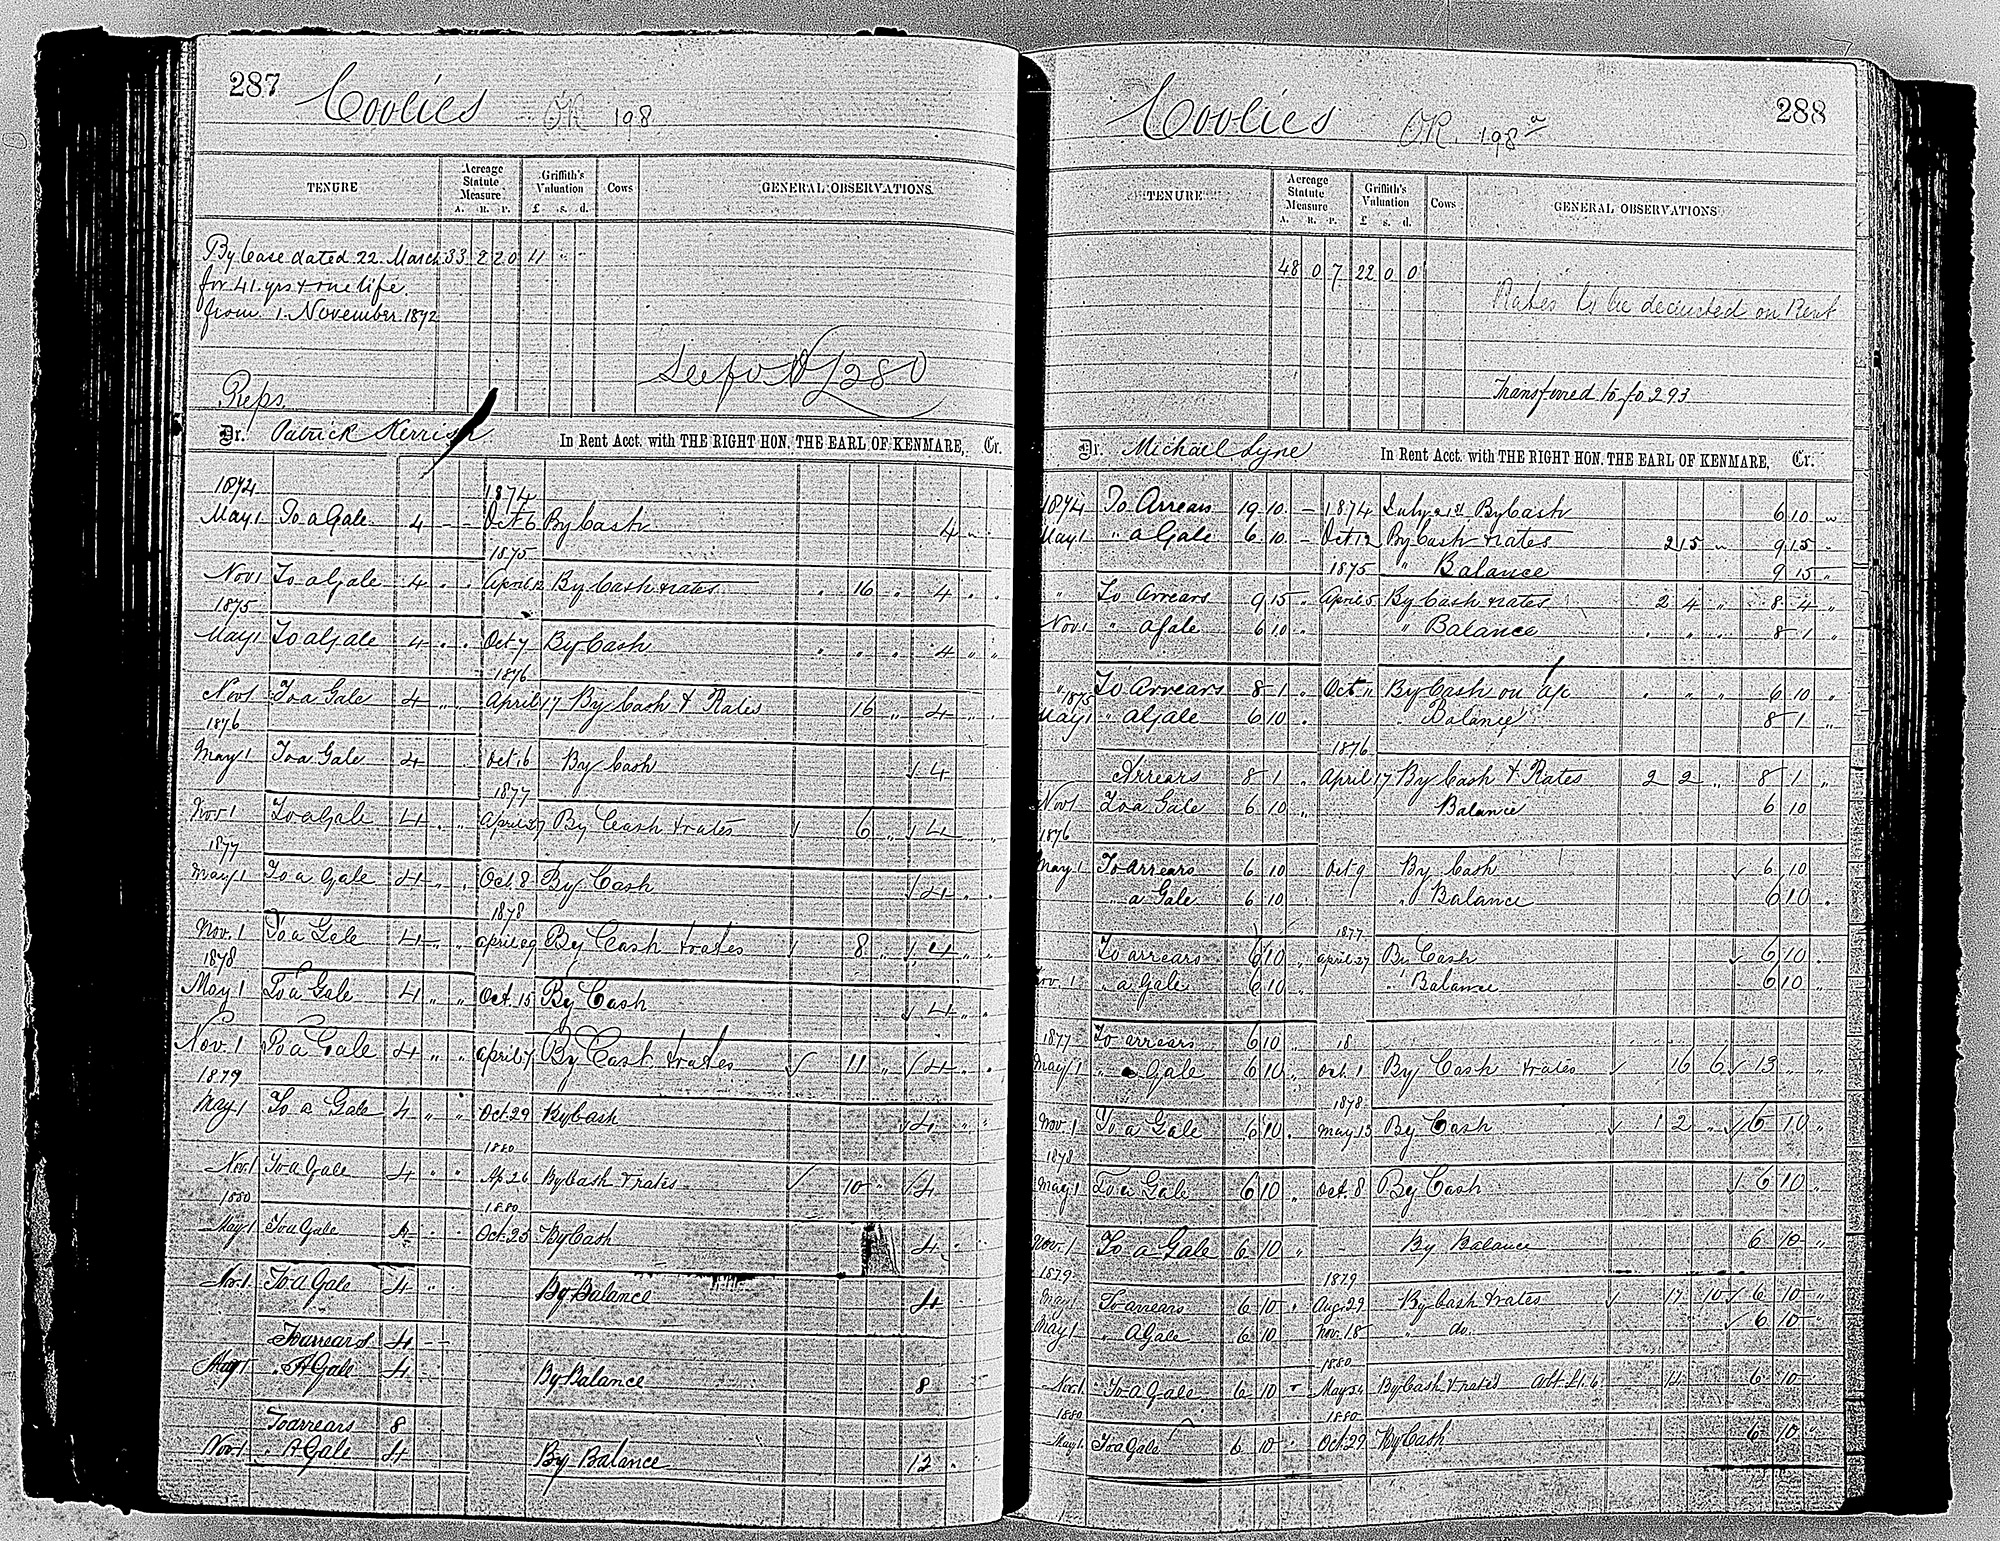 287
Coolies OR 198
TENURE Acreage Statute Measure A. R. P. Griffith's Valuation £ s. d. Cows GENERAL OBSERVATIONS.
By lease dated 22 March 33 2 20 11 " "
for 41 yrs & one life
from 1 November 1872
See fo 280
Reps
Dr. Patrick Kerrisk In Rent Acct. with THE RIGHT HON. THE EARL OF KENMARE, Cr.
1874 1874
May 1 To a Gale 4 - - Oct 6 By Cash 4 " "
1875
Nov 1 To a Gale 4 " " April 12 By Cash & rates " 16 " 4 " "
1875
May 1 To a Gale 4 " " Oct 7 By Cash " " " 4 " "
1876
Nov 1 To a Gale 4 " " April 17 By Cash & Rates 16 " 4 " "
1876
May 1 To a Gale 4 Oct 16 By Cash 4
1877
Nov 1 To a Gale 4 " " April 27 By Cash & rates 6 " 4 "
1877
May 1 To a Gale 4 " " Oct. 8 By Cash 4 " "
1878
Nov. 1 To a Gale 4 " " April 29 By Cash & rates 8 " 4 " "
1878
May 1 To a Gale 4 " " Oct. 15 By Cash 4 " "
Nov. 1 To a Gale 4 " " April 7 By Cash & rates 11 " 4 " "
1879
May 1 To a Gale 4 " " Oct. 29 By Cash 4 " "
1880
Nov 1 To a Gale 4 " " Ap. 26 By Cash & rates 10 " 4
1880 1880
May 1 To a Gale 4 " Oct. 25 By Cash 4 "
Nov 1. To a Gale 4 " By Balance 4
To arrears 4 - -
May 1 " A Gale 4 By Balance 8
To arrears 8
Nov 1 " A Gale 4 By Balance 12
288
Coolies OR. 198a
TENURE Acreage Statute Measure A. R. P. Griffith's Valuation £ s. d. Cows GENERAL OBSERVATIONS
48 0 7 22 0 0
Rates to be deducted on Rent
Transferred to fo 293
Dr. Michael Lyne In Rent Acct. with THE RIGHT HON. THE EARL OF KENMARE, Cr.
1874 To Arrears 19 10 - 1874 July 21st By Cash 6 10 "
May 1 " a Gale 6 10 - Oct 12 By Cash & rates 2 15 " 9 15 "
1875 " Balance 9 15 "
" To Arrears 9 15 " April 5 By Cash & rates 2 4 " 8 4 "
Nov 1 " a Gale 6 10 " " Balance " " " 8 1 "
" To Arrears 8 1 " Oct 11 By Cash on a/c " " " 6 10 "
1875
May 1 " a Gale 6 10 " " Balance 8 1 "
1876
Arrears 8 1 " April 17 By Cash & Rates 2 2 " 8 1 "
Nov 1 To a Gale 6 10 " Balance 6 10
1876
May 1 To arrears 6 10 Oct 9 By Cash 6 10
" a Gale 6 10 " Balance 6 10 "
1877
To arrears 6 10 " April 27 By Cash 6 10 "
Nov. 1 " a Gale 6 10 " " Balance 6 10 "
1877 To arrears 6 10 " 18
May 1 " a Gale 6 10 " Oct. 1 By Cash & rates 16 6 13 " "
1878
Nov. 1 To a Gale 6 10 " May 13 By Cash 1 2 " 6 10 "
1878
May 1 To a Gale 6 10 " Oct. 8 By Cash 6 10 "
Nov. 1 To a Gale 6 10 " - By Balance 6 10 "
1879 1879
May 1 To arrears 6 10 " Aug. 29 By Cash & rates 17 10 6 10 "
May 1 " A Gale 6 10 Nov. 18 " do. 6 10 "
1880
Nov 1. To A Gale 6 10 " May 24 By Cash & rates 6 10 "
1880 1880
May 1. To a Gale 6 10 " Oct. 29 By Cash 6 10 "